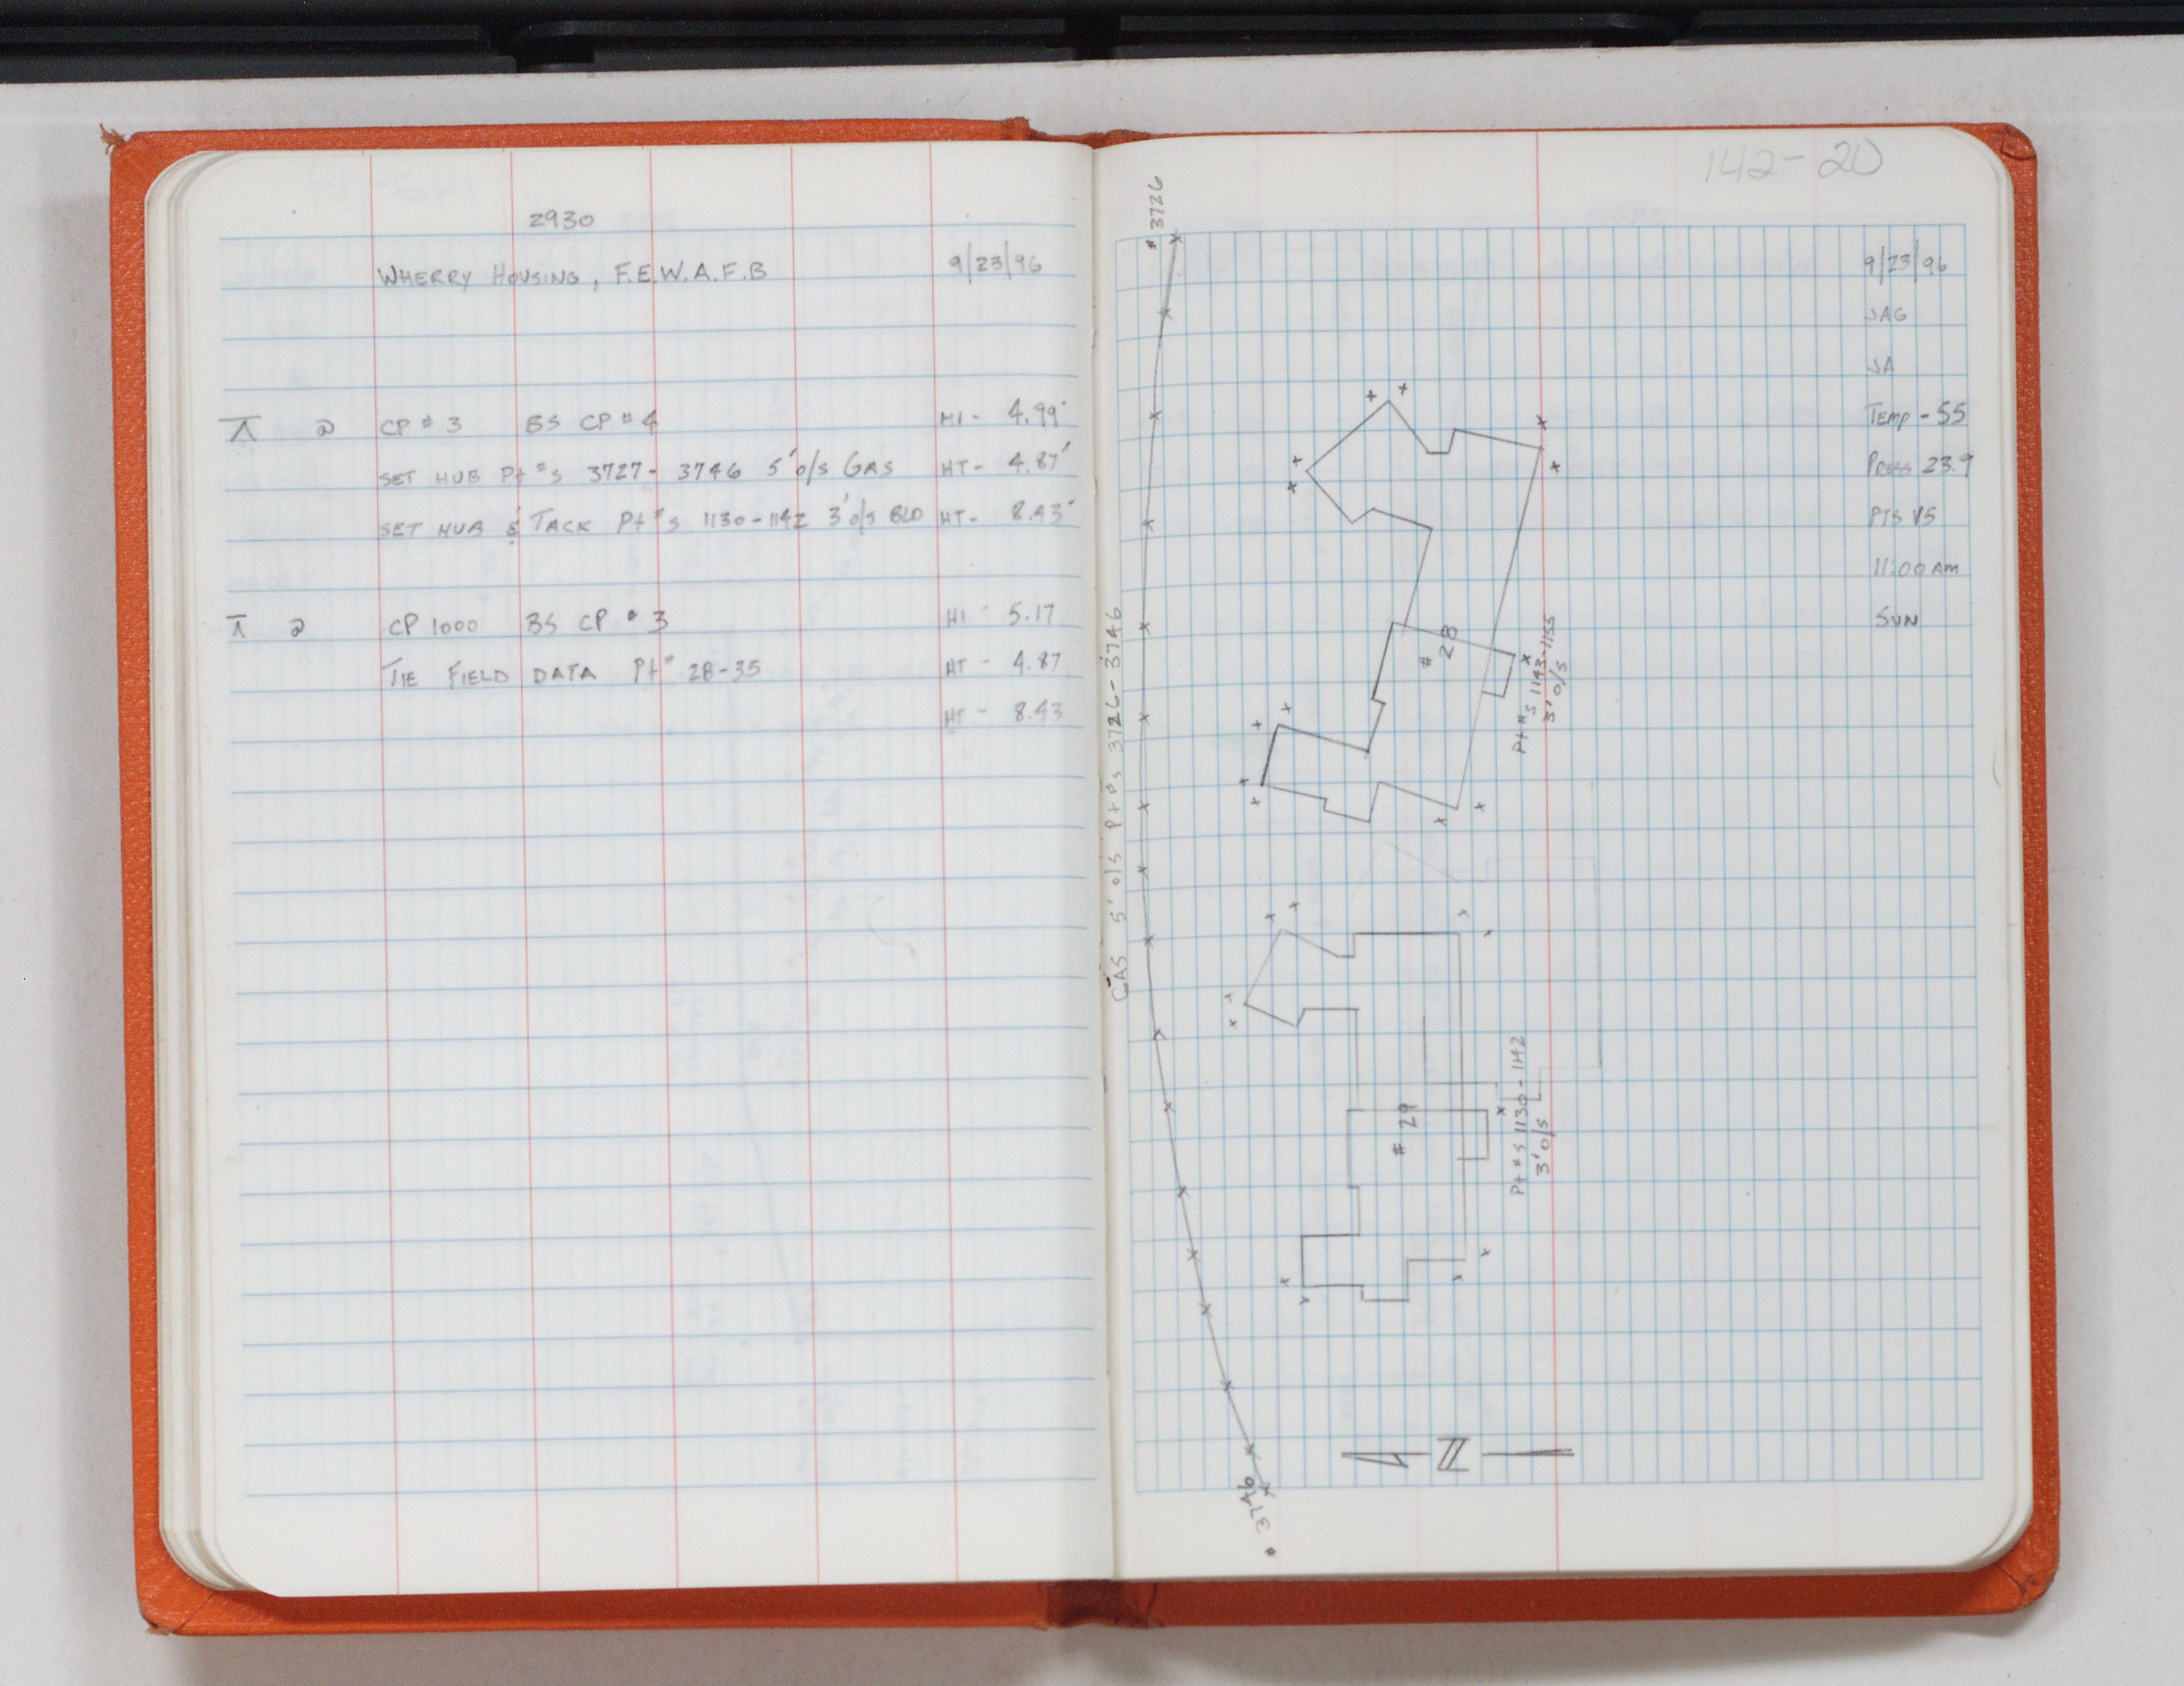 2930
WHERRY HOUSING, F.E.W.A.F.B 9/23/96
⊼ @ CP # 3 BS CP # 4 HI - 4.99'
SET HUB Pt #s 3727 - 3746 5' o/s GAS HT - 4.87'
SET HUB & TACK Pt #s 1130 - 1142 3' o/s BLD HT - 8.43'
⊼ @ CP 1000 BS CP # 3 HI - 5.17
TIE FIELD DATA Pt # 28-35 HT - 4.87
HT - 8.43
142-20
9/23/96
JAG
JA
TEMP - 55
PRESS 23.9
PTS V5
11:00 AM
SUN
# 3726
GAS 5' o/s Pt #s 3726 - 3746
# 28
Pt #s 1143-1155
3' o/s
# 29
Pt #s 1130 - 1142
3' o/s
N
# 3746